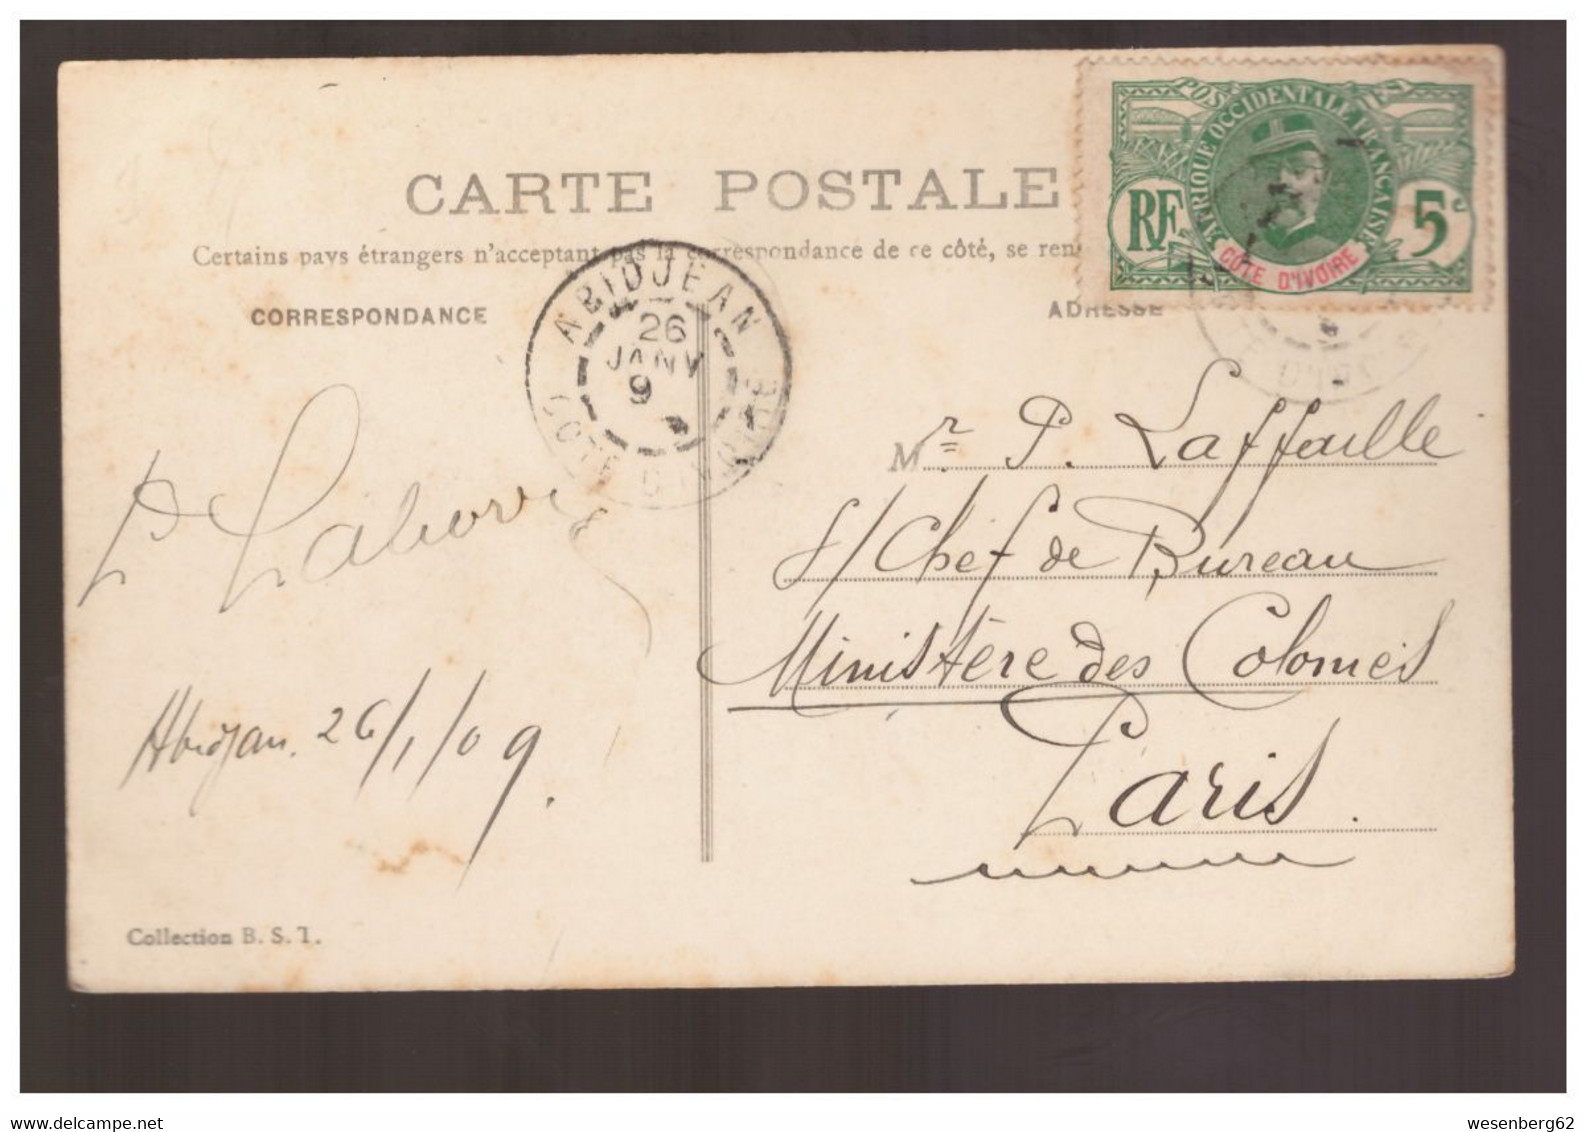 CARTE POSTALE
Certains pays étrangers n'acceptant pas la correspondance de ce côté, se ren
CORRESPONDANCE
ADRESSE
POS
AFRIQUE OCCIDENTALE FRANÇAISE
RF
5c
CÔTE D'IVOIRE
ABIDJEAN
26
JANV
9
COTE D'IVOIRE
Mr P. Laffaille
S/Chef de Bureau
Ministère des Colonies
Paris.
Abidjan. 26/1/09.
Collection B. S. T.
www.delcampe.net
wesenberg62